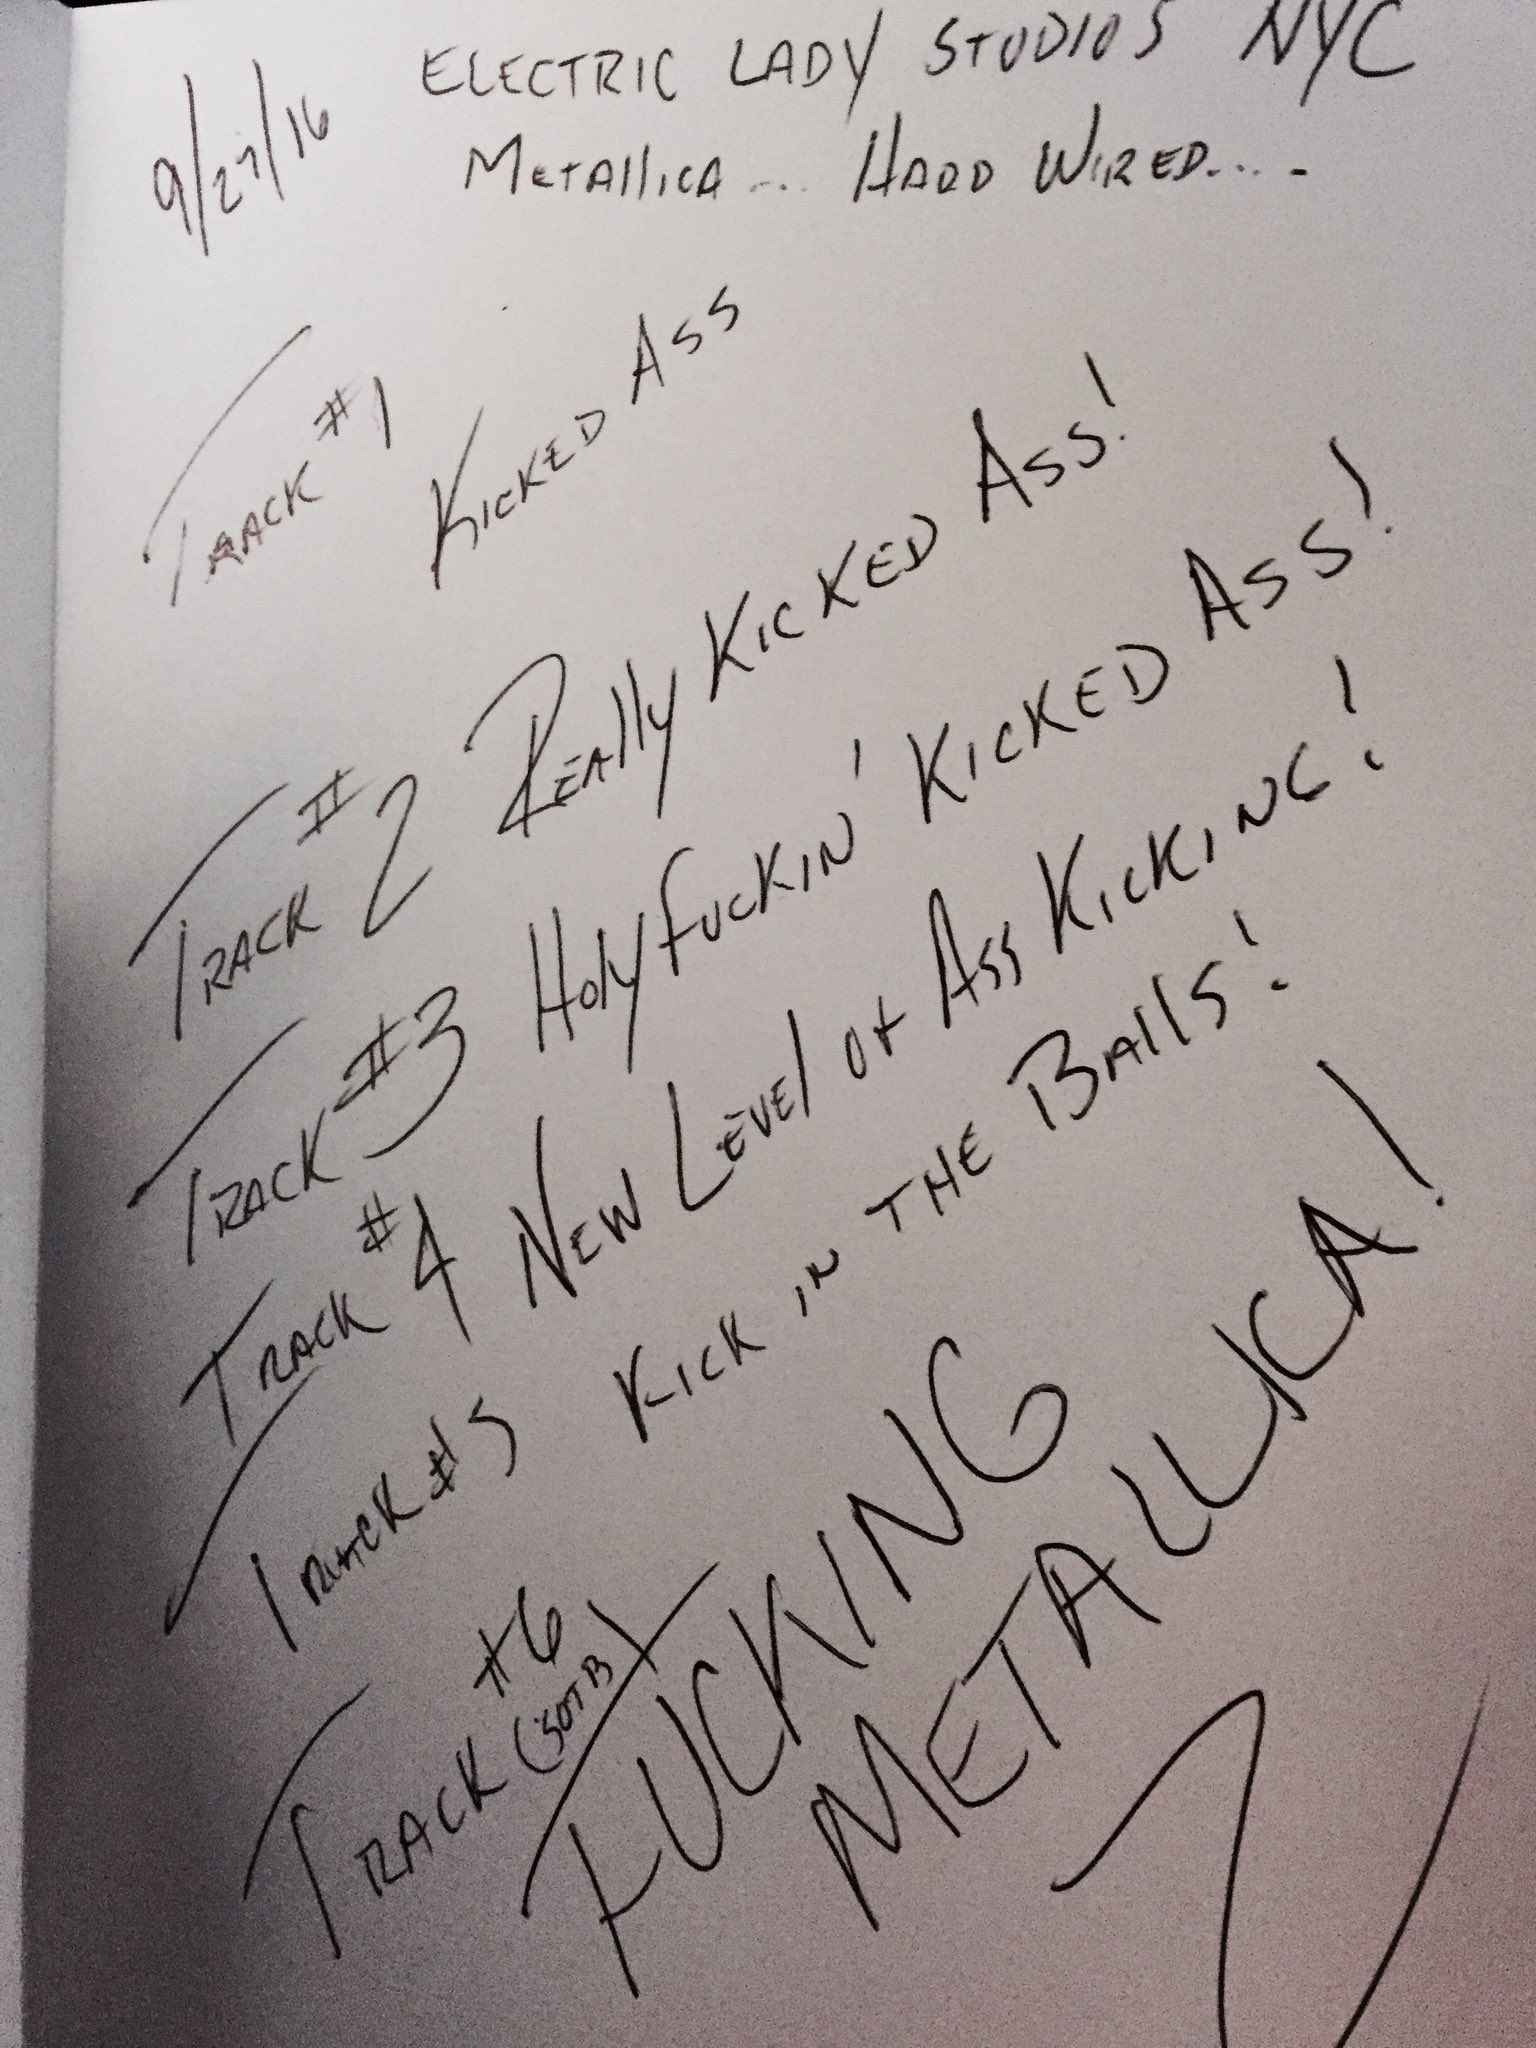 9/27/16 ELECTRIC LADY STUDIOS NYC
METAllICA.... HARD WIRED.....
TRACK #1 KICKED ASS
TRACK #2 REAlly KICKED ASS!
TRACK #3 HOly FUCKIN' KICKED ASS!
TRACK #4 NEW LEVEl OF ASS KICKING!
TRACK #5 KICK IN THE BAllS!
TRACK #6
(SOTB)
FUCKING
METALLICA!